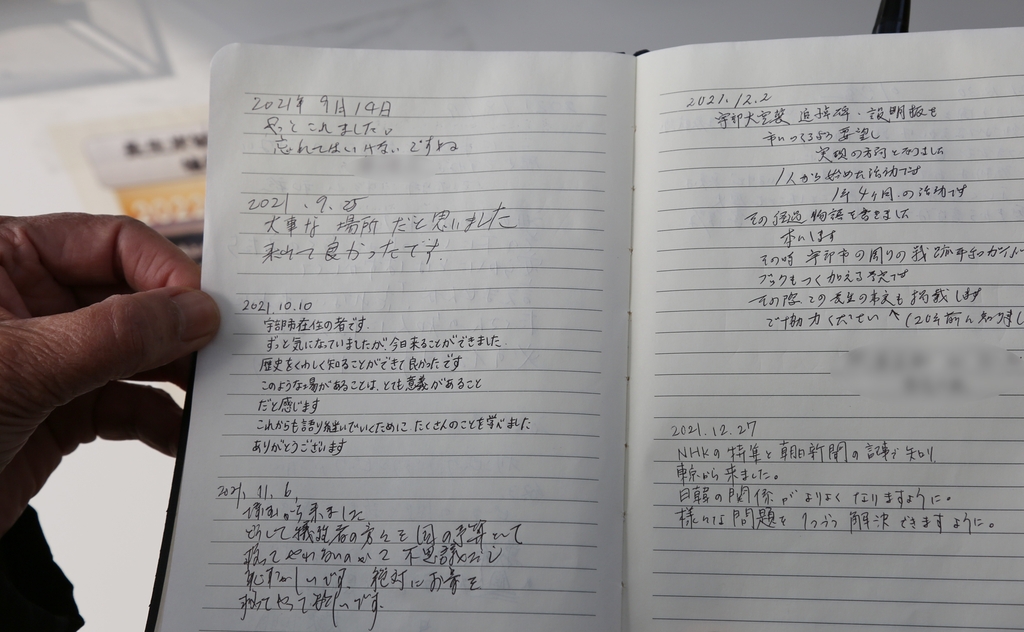 2021年9月14日
やっとこれました。
忘れてはいけないですよね
2021.9.25
大事な場所だと思いました
来れて良かったです。
2021.10.10
宇部市在住の者です。
ずっと気になっていましたが今日来ることができました。
歴史をくわしく知ることができて良かったです
このような場があることは、とても意義があること
だと感じます
これからも語り継いでいくために たくさんのことを学べました
ありがとうございます
2021.11.6,
から来ました
どうして犠牲者の方々を国の予算として
不思議だし
恥ずかしいです。絶対にお骨を
やって欲しいです。
2021.12.2
宇部大空襲 追悼碑・説明版を
市につくるよう要望し
実現の方向となりました
1人から始めた活動です
1年4ヶ月の活動です
その 物語を書きました
本にします
その時 宇部市の周りの戦 ガイド
ブックもつく加える予定です
その際この も掲載します
ご協力ください (20年前に
2021.12.27
NHKの特集と朝日新聞の記事で知り
東京から来ました。
日韓の関係がよりよくなりますように。
様々な問題を1つづつ解決できますように。